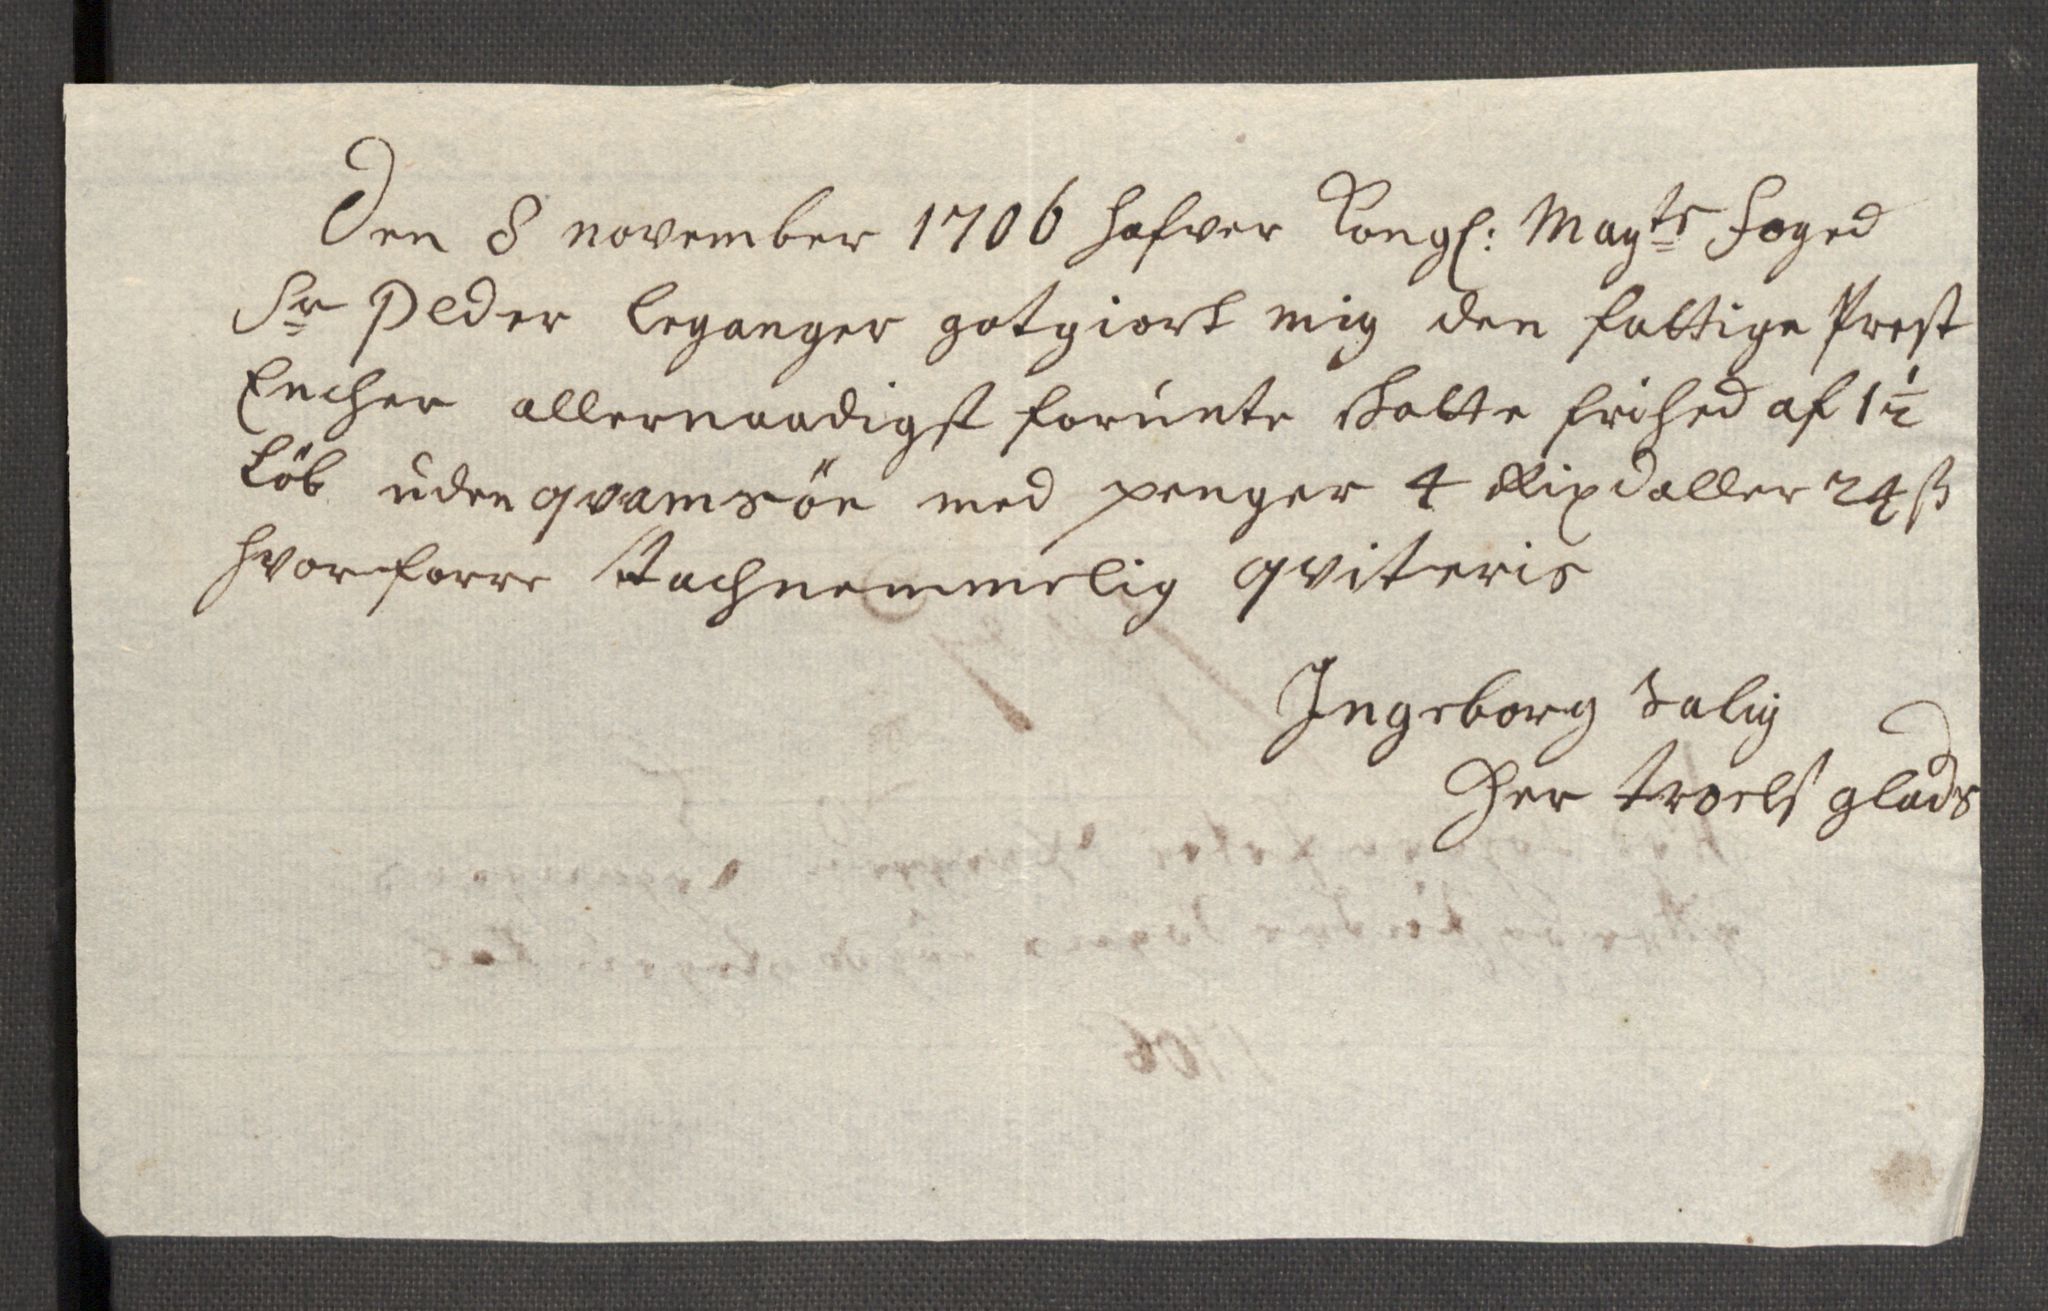 Den 8 november 1706 hafver Kongl: Mayts foged
Sr Peder Leganger gotgiort mig den fattige Prest
Encher allernaadigst forunte skatte frihed af 1½
Löb uden qvamsöe med penger 4 Rixdaller 24 ß
hvorforre tachnemmelig qviteris
Ingeborg salig
Her troels glads
1706